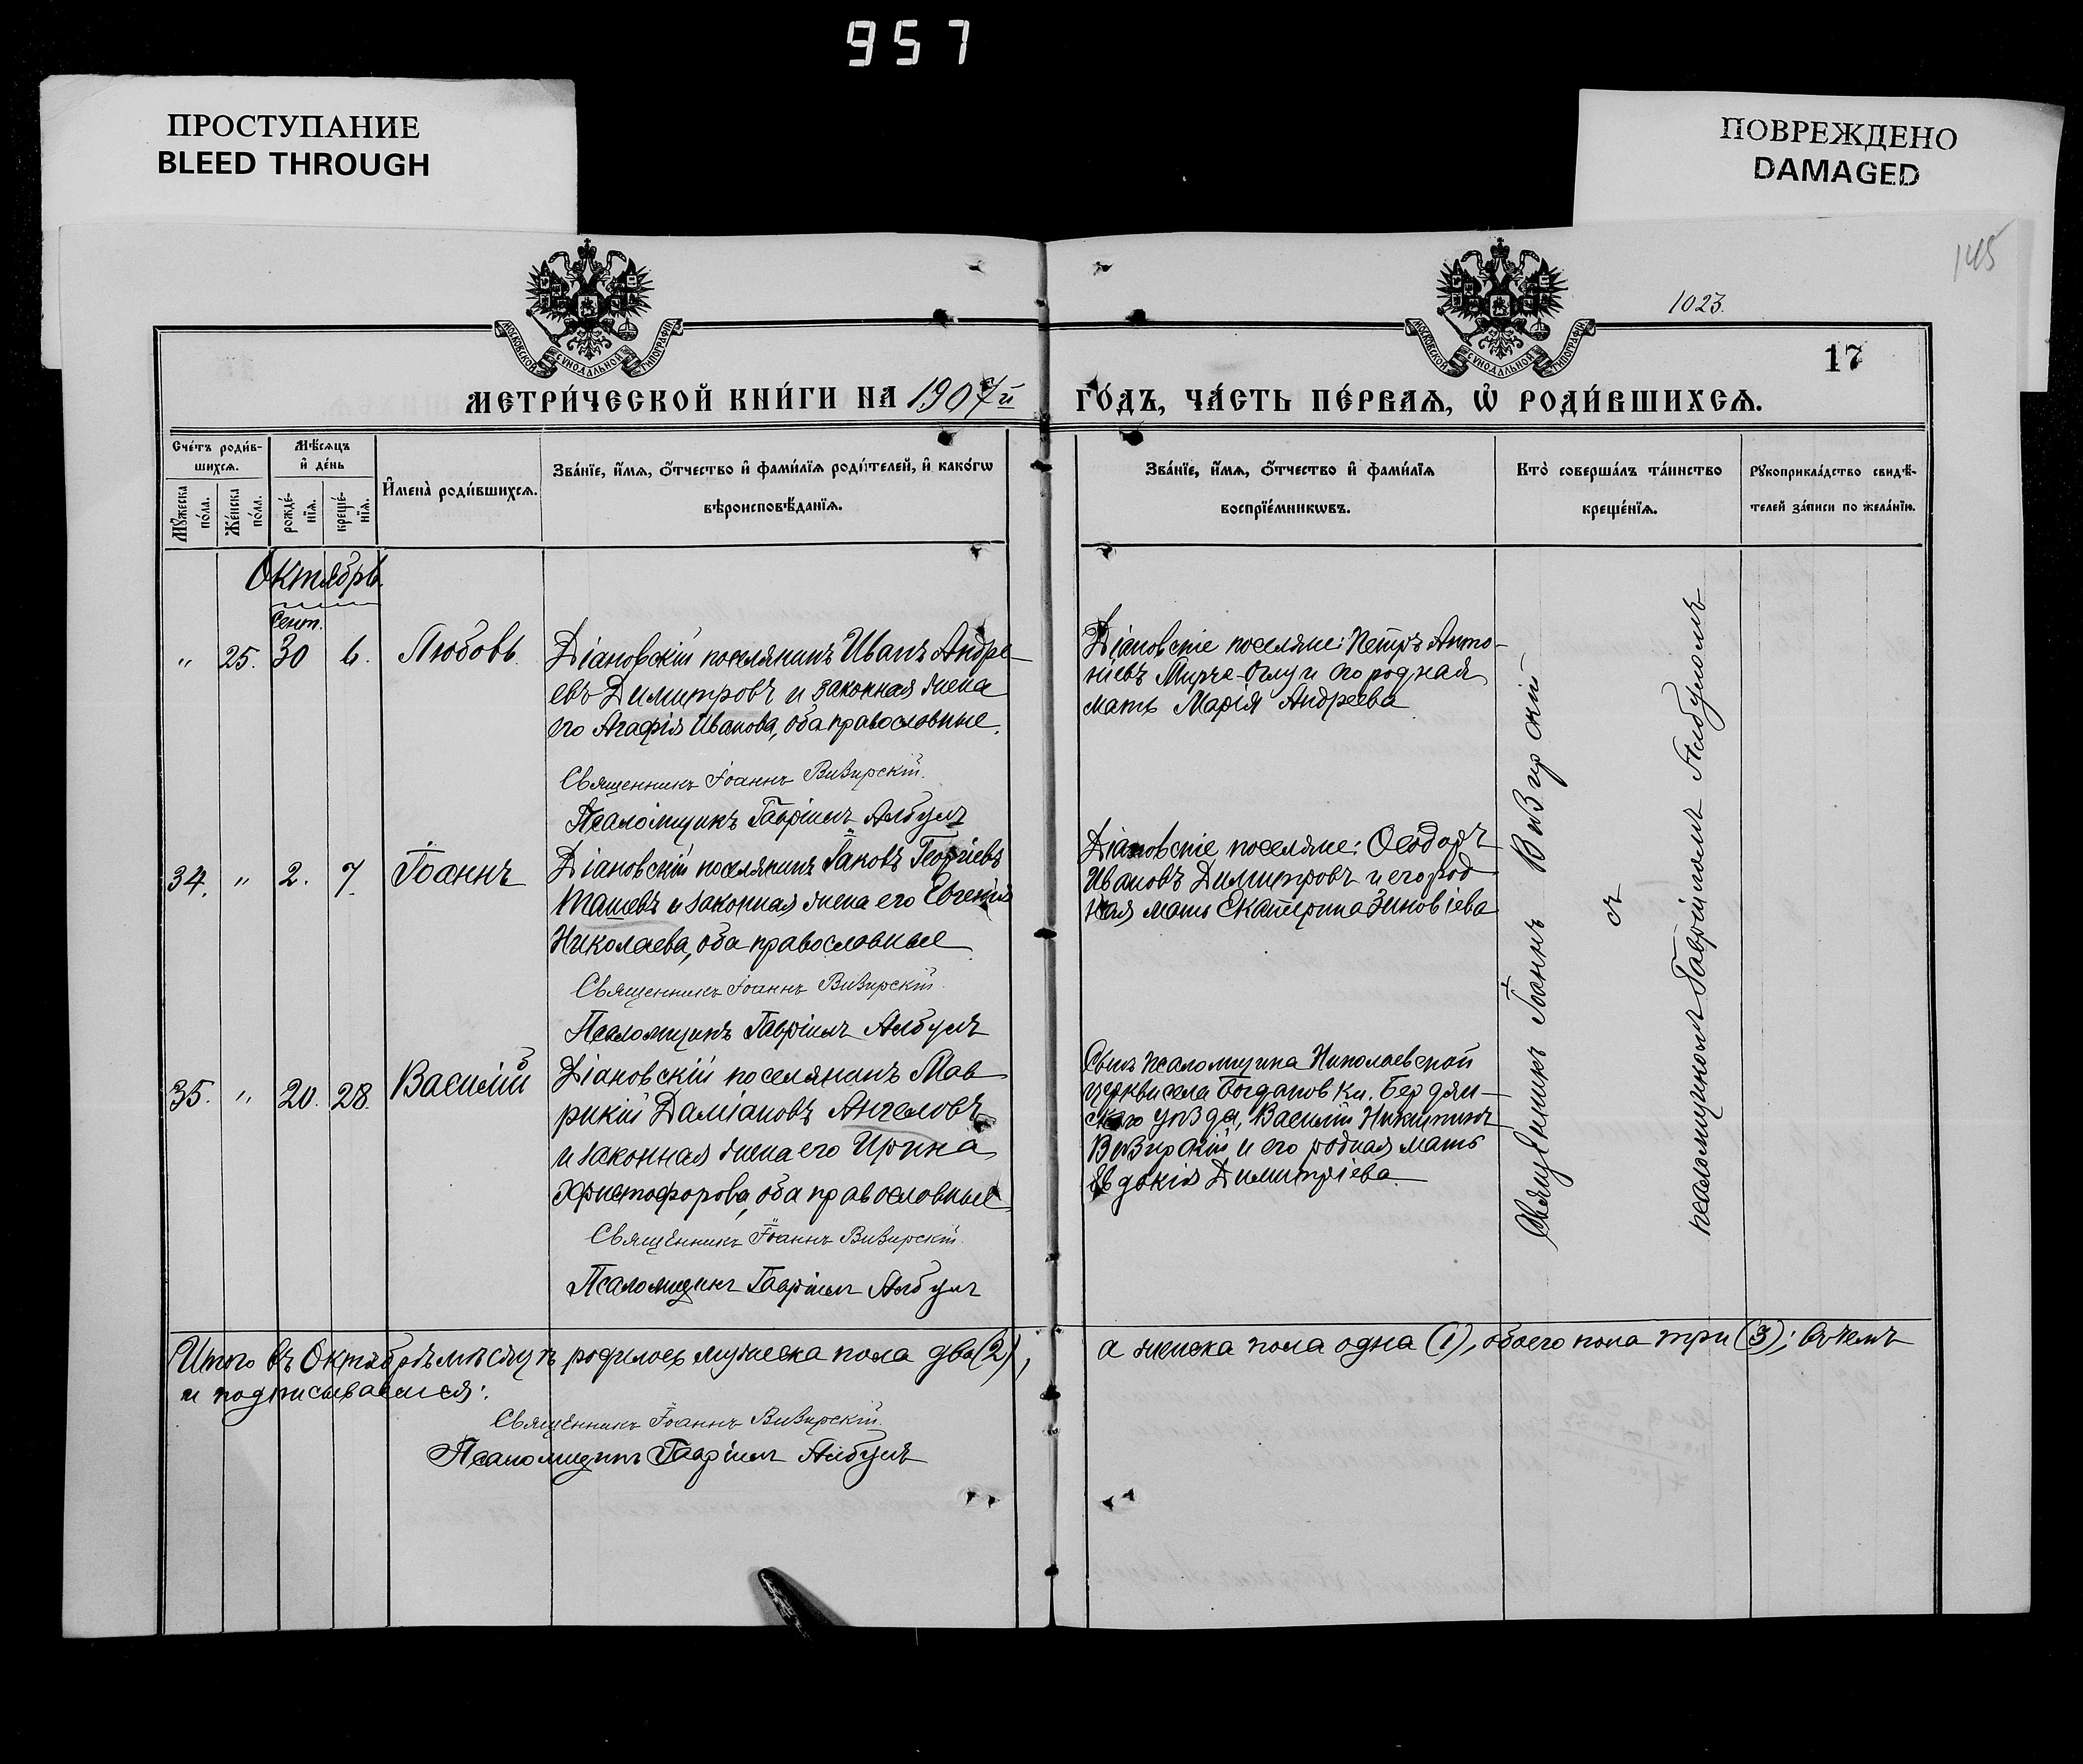 957
ПРОСТУПАНИЕ
BLEED THROUGH
ПОВРЕЖДЕНО
DAMAGED
145
1023.
17
МОСКОВСКОЙ СѴНОДАЛЬНОЙ ТИПОГРАФІИ
МОСКОВСКОЙ СѴНОДАЛЬНОЙ ТИПОГРАФІИ
МЕТРИ́ЧЕСКОЙ КНИ́ГИ НА 1907й ГО́ДЪ, ЧА́СТЬ ПЕ́РВАѦ, Ѡ҆ РОДИ́ВШИХСѦ.
Сче́тъ роди́в-
шихсѧ.
Мꙋ́жеска по́ла.
Же́нска по́ла.
Мѣ́сѧцъ
и҆ де́нь
рожде́-
нїѧ.
креще́-
нїѧ.
И҆мена̀ роди́вшихсѧ.
Зва́нїе, и҆́мѧ, ѻ҆́тчество и҆ фами́лїѧ роди́телей, и҆ како́гѡ
вѣроисповѣ́данїѧ.
Зва́нїе, и҆́мѧ, ѻ҆́тчество и҆ фами́лїѧ
воспрїе́мникѡвъ.
Кто̀ соверша́лъ та́инство
креще́нїѧ.
Рꙋкоприкла́дство свидѣ́-
телей за́писи по жела́нїю.
Октябрь
Сент.
" 25. 30 6. Любовь
Діановскій поселянинъ Иванъ Андре-
евъ Димитровъ и законная жена
его Агафія Иванова, оба православные.
Священникъ Іоаннъ Визирскій.
Псаломщикъ Гавріилъ Албулъ
Діановскіе поселяне: Петръ Анто-
ніевъ Мирче-Оглу и его родная
мать Марія Андреева
34. " 2. 7 Іоаннъ
Діановскій поселянинъ Іаковъ Георгіевъ
Ташевъ и законная жена его Евгенія
Николаева, оба православные
Священникъ Іоаннъ Визирскій.
Псаломщикъ Гавріилъ Албулъ
Діановскіе поселяне: Ѳеодоръ
Ивановъ Димитровъ и его род
ная мать Екатерина Зиновіева
35. " 20. 28. Василій
Діановскій поселянинъ Мав
рикій Даміановъ Ангеловъ
и законная жена его Ирина
Христофорова, оба православные
Священникъ Іоаннъ Визирскій.
Псаломщикъ Гавріилъ Албулъ
Сынъ псаломщика Николаевской
церкви села Богдановки, Бердян-
скаго уѣзда, Василій Никитинъ
Визирскій и его родная мать
Евдокія Димитріева
Священникъ Іоаннъ Визирскій
съ
псаломщикомъ Гавріиломъ Албуломъ
Итого въ Октябрѣ мѣсяцѣ родилось мужеска пола два (2), а женска пола одна (1), обоего пола три (3); въ чемъ
и подписываемся:
Священникъ Іоаннъ Визирскій.
Псаломщикъ Гавріилъ Албулъ